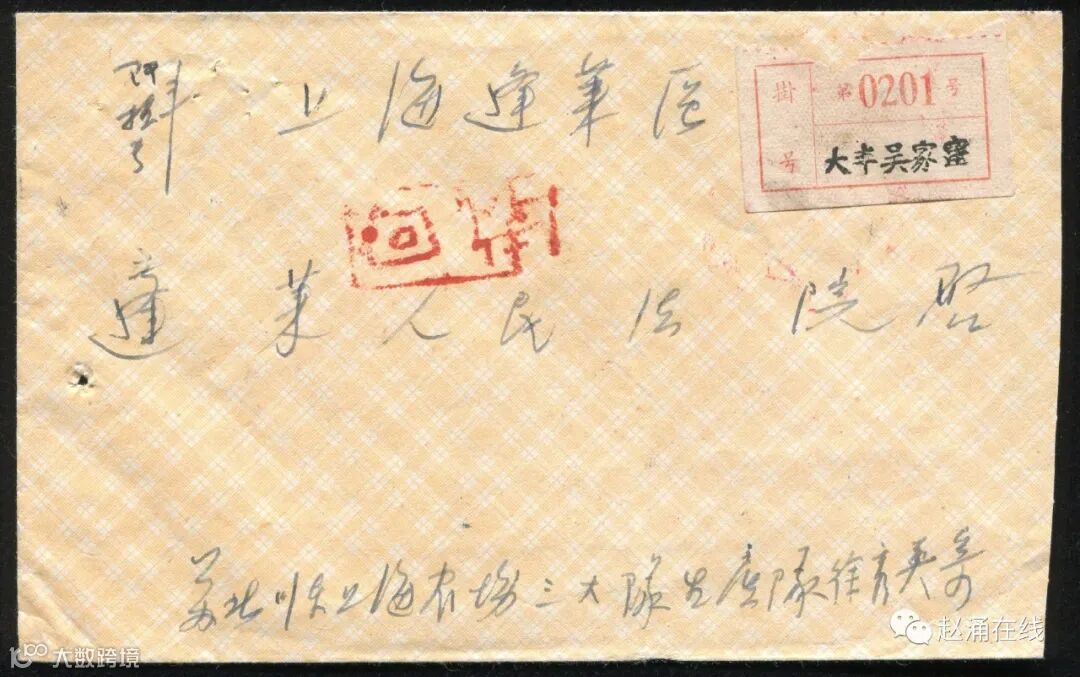 上海蓬莱区
掛号
第0201号
大丰吴家窑
回
蓬莱人民法院启
苏北川东上海农场三大队生产队徐 英寄
大数跨境
赵涌在线